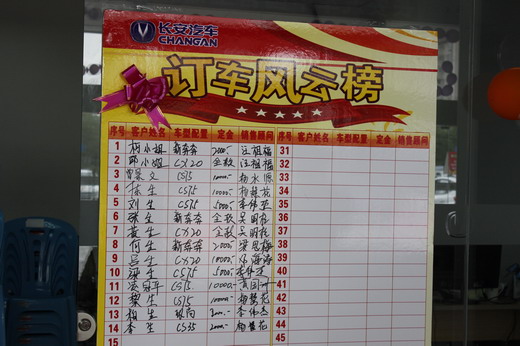 长安汽车
CHANGAN
订车风云榜
序号 客户姓名 车型配置 定金 销售顾问 序号 客户姓名 车型配置 定金 销售顾问
1 小姐 新奔奔 2000- 汪祖福 31
2 邓小姐 CX20 全款 汪祖福 32
3 CS75 10000- 杨永源 33
4 生 CS75 10000- 杨樊花 34
5 刘生 CS75 5000- 李伟杰 35
6 张生 新奔奔 全款 吴国花 36
7 黄生 CX20 全款 吴国花 37
8 何生 新奔奔 2000- 梁恩梅 38
9 吕生 CX20 1000- 39
10 梁生 CS75 5000- 李伟杰 40
11 CS75 10000- 41
12 黎生 CS75 10000- 杨樊花 42
13 生 2000- 李伟杰 43
14 李生 CS35 2000- 杨樊花 44
15 45